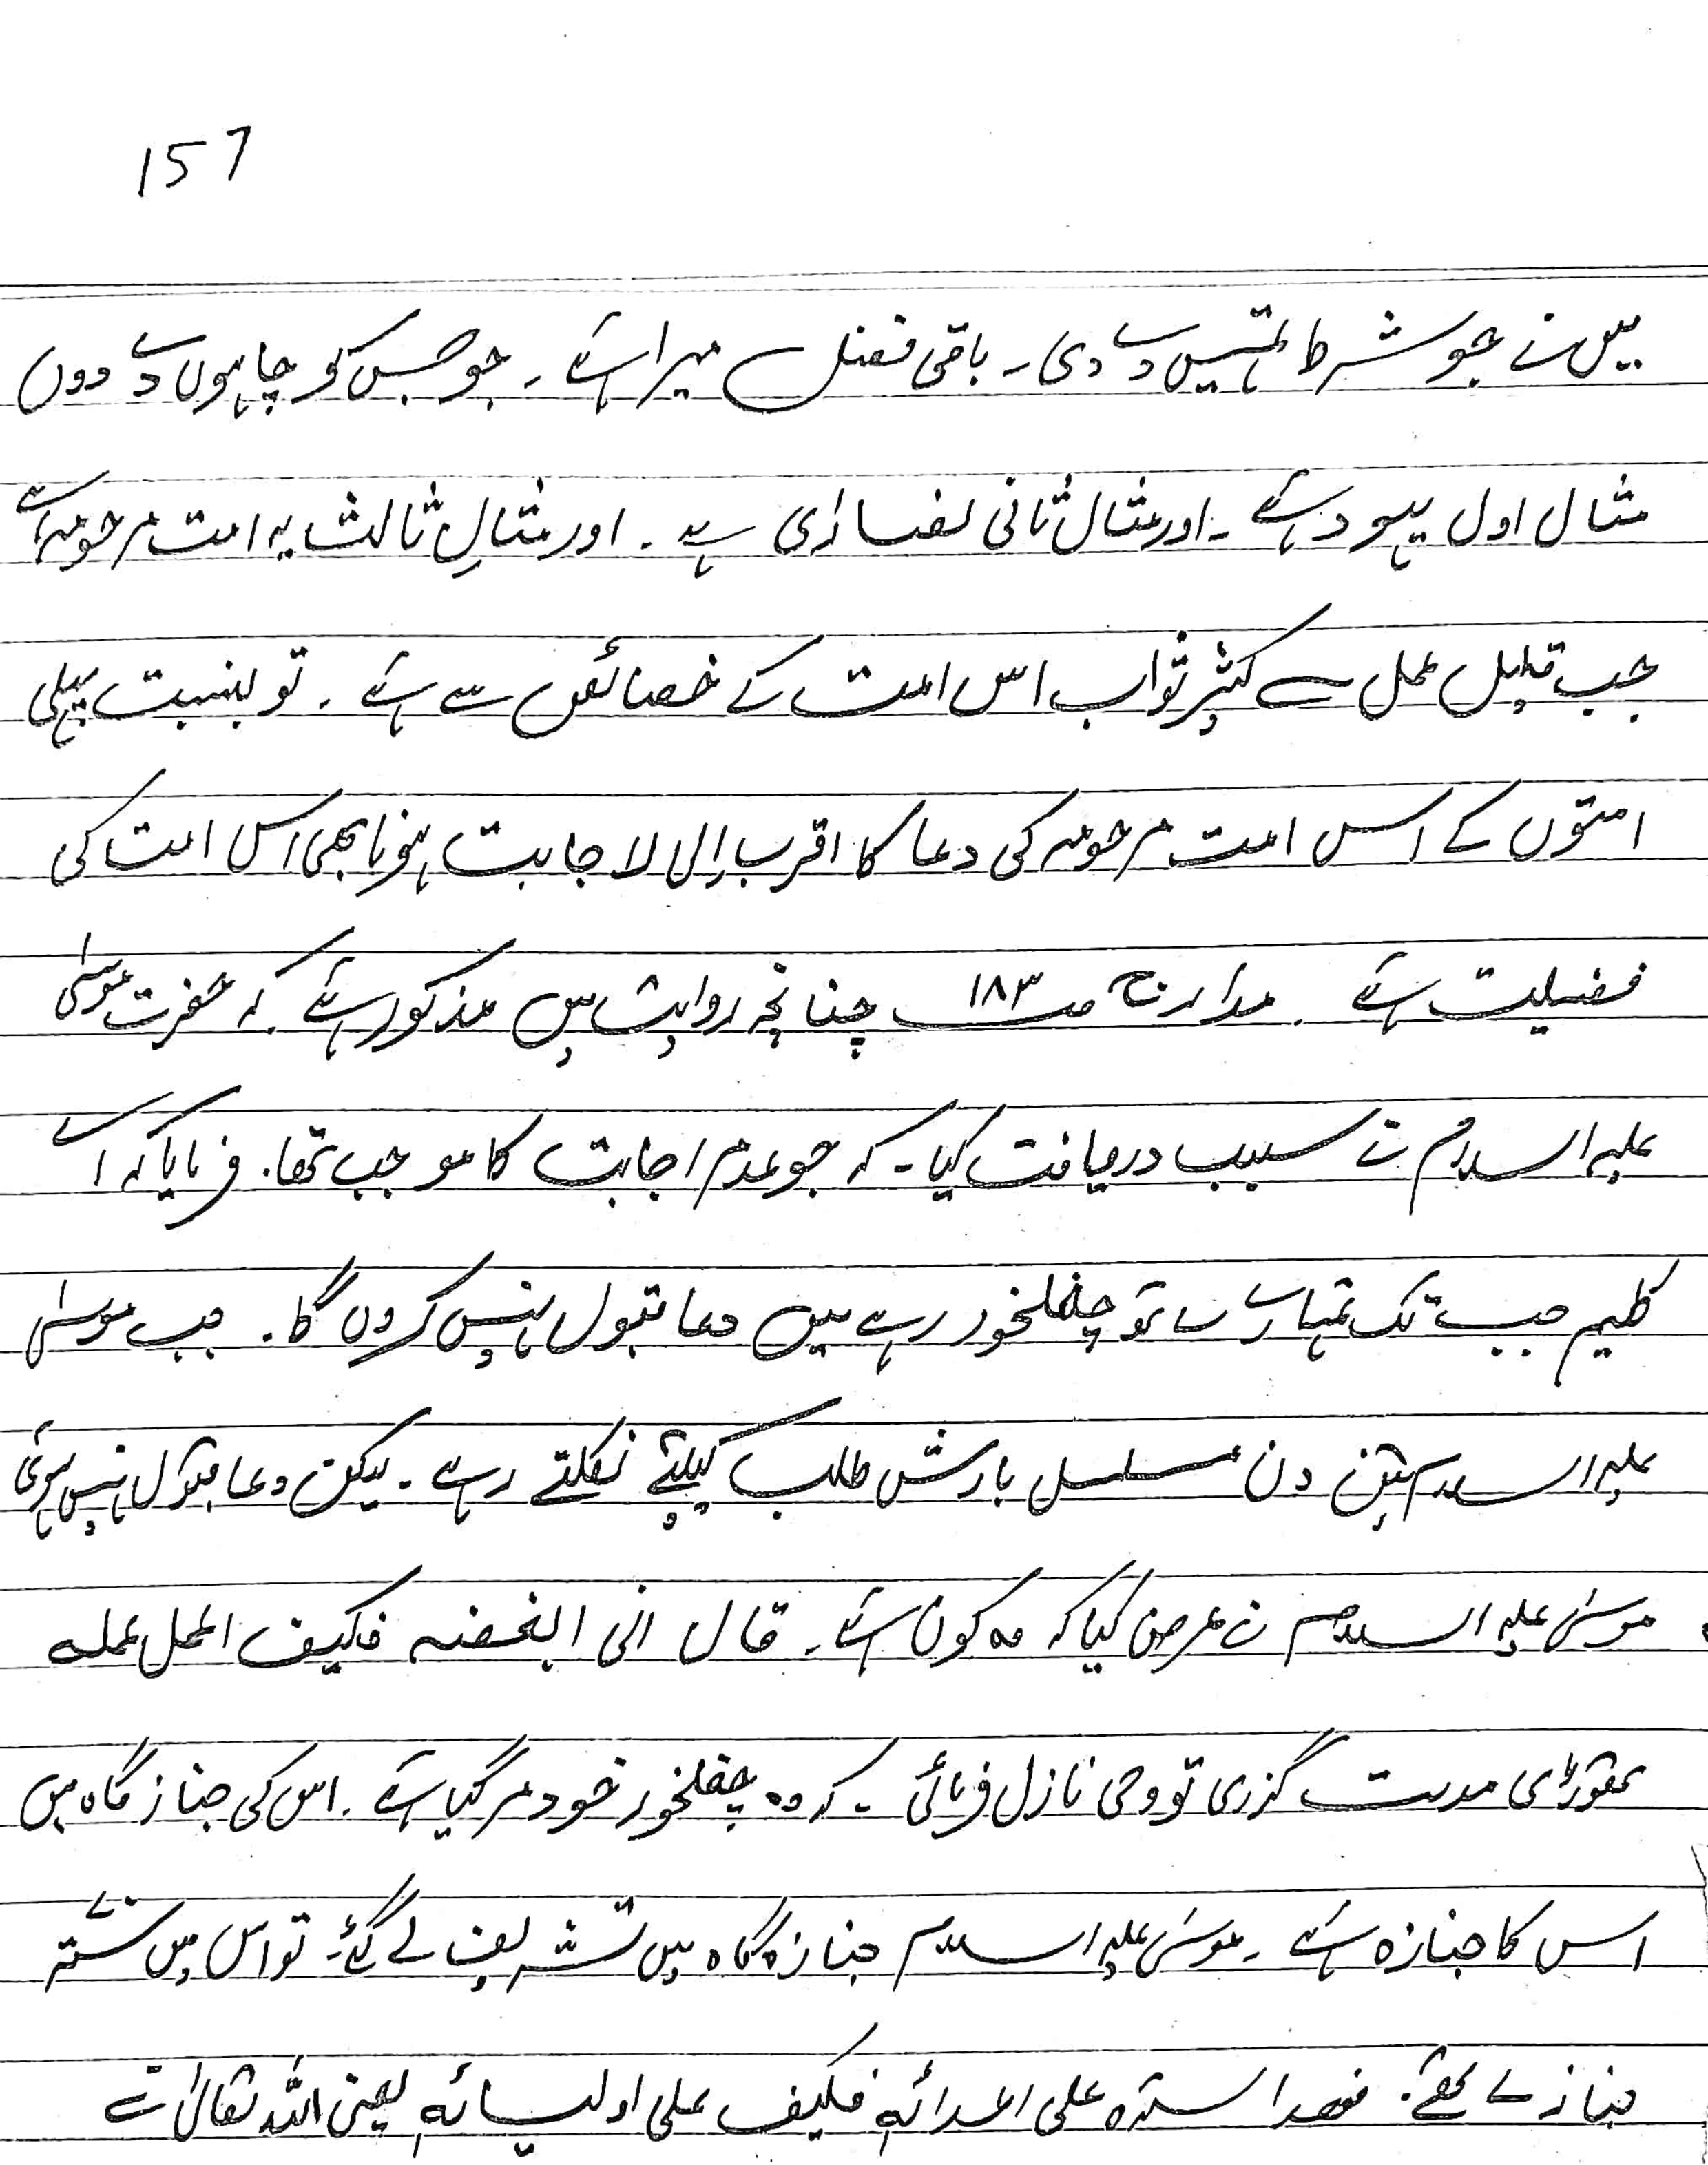 157
میں نے جو شرط تمہیں دے دی۔ باقی فضل میرا ہے۔ جو جس کو چاہوں دے دوں
مثال اول یہود ہے۔ اور مثال ثانی نصاریٰ ہے۔ اور مثالِ ثالث یہ امت مرحومہ ہے
جب قلیل عمل سے کثیر ثواب اس امت کے خصائص سے ہے۔ تو بنسبت پہلی
امتوں کے اس امت مرحومہ کی دعا کا اقرب اِلی الاجابت ہونا بھی اس امت کی
فضیلت ہے۔ مدارج ص ۱۸۳ چنانچہ روایت میں مذکور ہے کہ حضرت موسیٰ
علیہ السلام نے سبب دریافت کیا۔ کہ جو عدم اجابت کا موجب تھا۔ فرمایا کہ اے
کلیم جب تک تمہارے ساتھ چغلخور رہے میں دعا قبول نہیں کروں گا۔ جب موسیٰ
علیہ السلام تین دن مسلسل بارش طلب کیلئے نکلتے رہے۔ لیکن دعا قبول نہیں ہوئی
موسیٰ علیہ السلام نے عرض کیا کہ وہ کون ہے۔ قال انی ابغضہ فکیف اعمل عملہ
تھوڑی مدت گذری تو وحی نازل فرمائی۔ کہ وہ چغلخور خود مر گیا ہے۔ اس کی جناز گاہ میں
اس کا جنازہ ہے۔ موسیٰ علیہ السلام جنازہ گاہ میں تشریف لے گئے۔ تو اس میں ستر
جنازے تھے۔ فھذا سترہ علی اعدائہِ فکیف علی اولیائہِ یعنی اللہ تعالیٰ نے